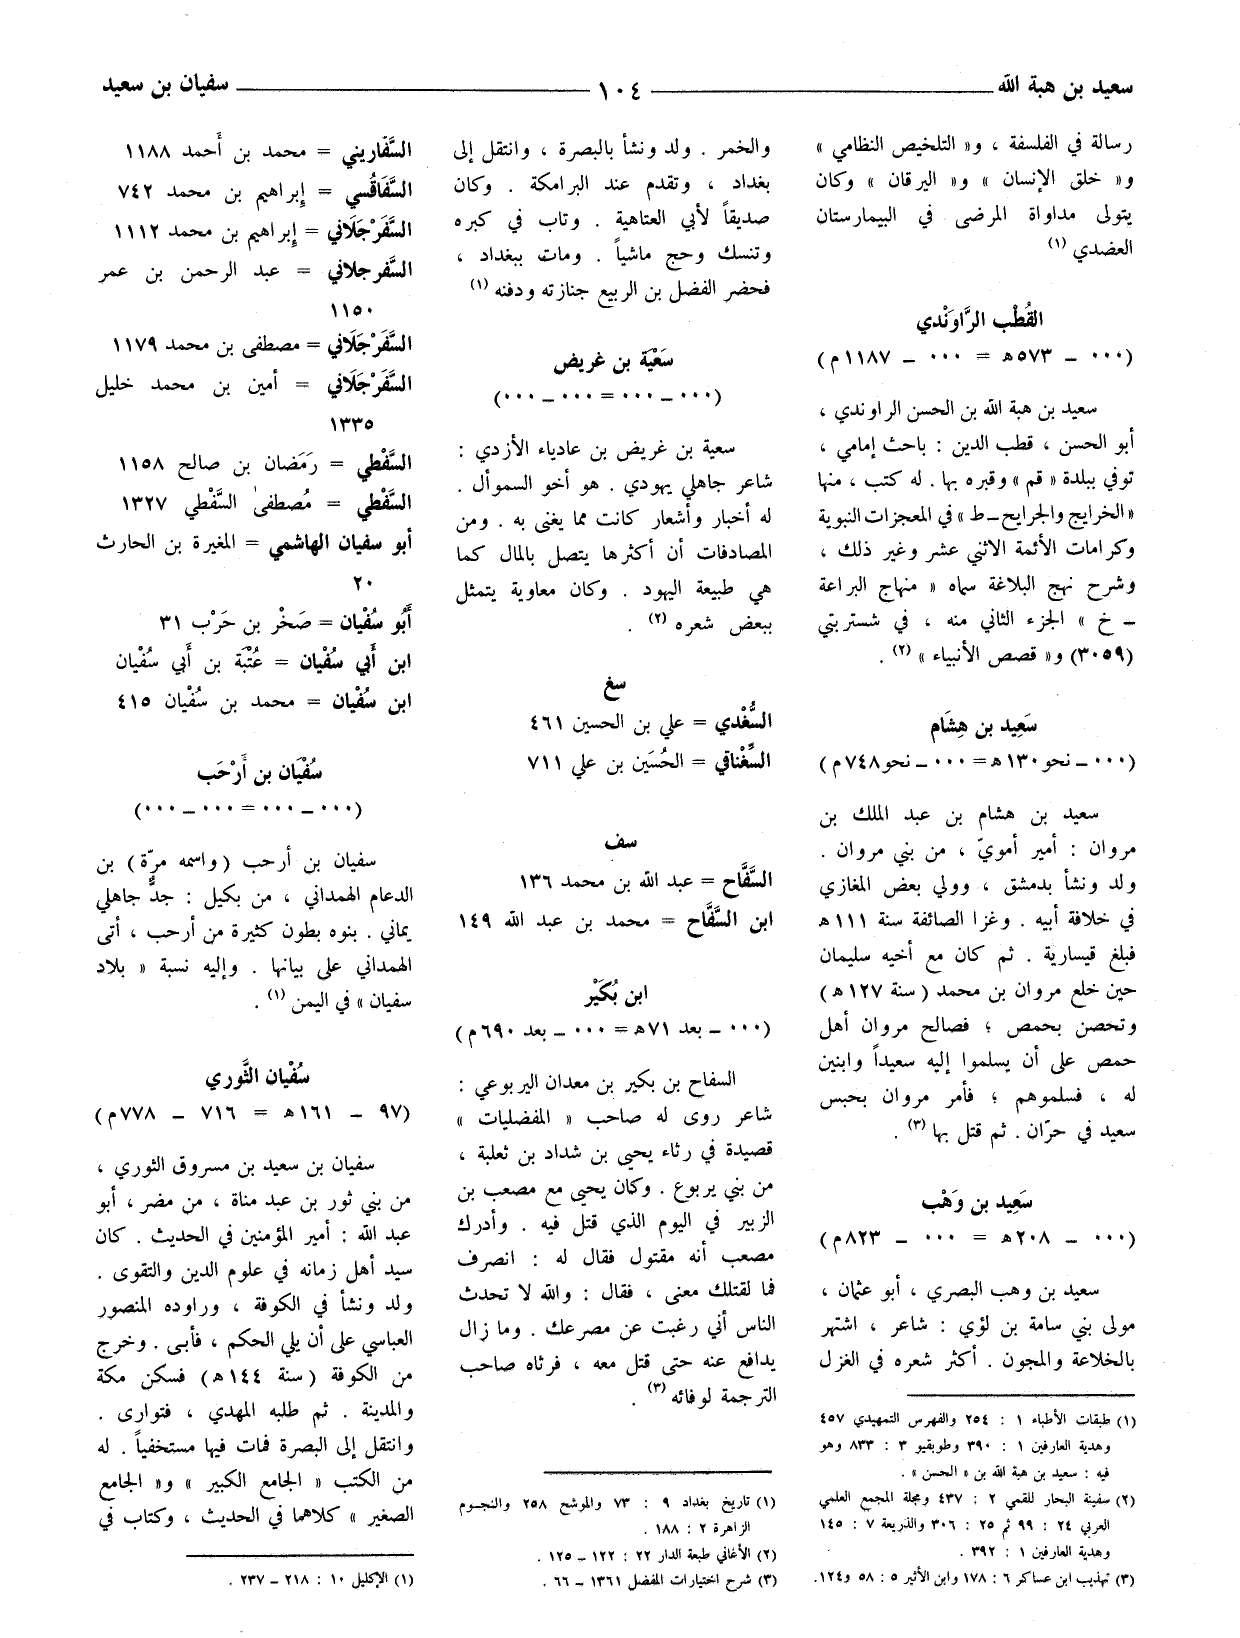 سعيد بن هبة الله
١٠٤
سفيان بن سعيد
رسالة في الفلسفة ، و« التلخيص النظامي »
و« خلق الإنسان » و« اليرقان » وكان
يتولى مداواة المرضى في البيمارستان
العضدي (١)
القُطْب الرَّاوَنْدي
(٠٠٠ – ٥٧٣ه = ٠٠٠ – ١١٨٧م)
سعيد بن هبة الله بن الحسن الراوندي ،
أبو الحسن ، قطب الدين : باحث إمامي ،
توفي ببلدة « قم » وقبره بها . له كتب ، منها
« الخرايج والجرايح–ط » في المعجزات النبوية
وكرامات الأئمة الاثني عشر وغير ذلك ،
وشرح نهج البلاغة سماه « منهاج البراعة
– خ » الجزء الثاني منه ، في شستربتي
(٣٠٥٩) و« قصص الأنبياء » (٢) .
سَعِيد بن هِشَام
(٠٠٠ – نحو ١٣٠ه = ٠٠٠ – نحو ٧٤٨م)
سعيد بن هشام بن عبد الملك بن
مروان : أمير أمويّ ، من بني مروان .
ولد ونشأ بدمشق ، وولي بعض المغازي
في خلافة أبيه . وغزا الصائفة سنة ١١١ه
فبلغ قيسارية . ثم كان مع أخيه سليمان
حين خلع مروان بن محمد (سنة ١٢٧ه)
وتحصن بحمص ؛ فصالح مروان أهل
حمص على أن يسلموا إليه سعيداً وابنين
له ، فسلموهم ؛ فأمر مروان بحبس
سعيد في حرّان . ثم قتل بها (٣) .
سَعِيد بن وَهْب
(٠٠٠ – ٢٠٨ه = ٠٠٠ – ٨٢٣م)
سعيد بن وهب البصري ، أبو عثمان ،
مولى بني سامة بن لؤي : شاعر ، اشتهر
بالخلاعة والمجون . أكثر شعره في الغزل
(١) طبقات الأطباء ١ : ٢٥٤ والفهرس التمهيدي ٤٥٧
وهدية العارفين ١ : ٣٩٠ وطوبقيو ٣ : ٨٣٣ وهو
فيه : سعيد بن هبة الله بن « الحسن » .
(٢) سفينة البحار للقمي ٢ : ٤٣٧ ومجلة المجمع العلمي
العربي ٢٤ : ٩٩ ثم ٢٥ : ٣٠٦ والذريعة ٧ : ١٤٥
وهدية العارفين ١ : ٣٩٢ .
(٣) تهذيب ابن عساكر ٦ : ١٧٨ وابن الأثير ٥ : ٥٨ و١٢٤.
والخمر . ولد ونشأ بالبصرة ، وانتقل إلى
بغداد ، وتقدم عند البرامكة . وكان
صديقاً لأبي العتاهية . وتاب في كبره
وتنسك وحج ماشياً . ومات ببغداد ،
فحضر الفضل بن الربيع جنازته ودفنه (١)
سَعْيَة بن غريض
(٠٠٠ – ٠٠٠ = ٠٠٠ – ٠٠٠)
سعية بن غريض بن عادياء الأزدي :
شاعر جاهلي يهودي . هو أخو السموأل .
له أخبار وأشعار كانت مما يغنى به . ومن
المصادفات أن أكثرها يتصل بالمال كما
هي طبيعة اليهود . وكان معاوية يتمثل
ببعض شعره (٢) .
سغ
السُّغْدي = علي بن الحسين ٤٦١
السِّغْناقي = الحُسَين بن علي ٧١١
سف
السَّفَّاح = عبد الله بن محمد ١٣٦
ابن السَّفَّاح = محمد بن عبد الله ١٤٩
ابن بُكَيْر
(٠٠٠ – بعد ٧١ه = ٠٠٠ – بعد ٦٩٠م)
السفاح بن بكير بن معدان اليربوعي :
شاعر روى له صاحب « المفضليات »
قصيدة في رثاء يحيى بن شداد بن ثعلبة ،
من بني يربوع . وكان يحيى مع مصعب بن
الزبير في اليوم الذي قتل فيه . وأدرك
مصعب أنه مقتول فقال له : انصرف
فما لقتلك معنى ، فقال : والله لا تحدث
الناس أني رغبت عن مصرعك . وما زال
يدافع عنه حتى قتل معه ، فرثاه صاحب
الترجمة لوفائه (٣) .
(١) تاريخ بغداد ٩ : ٧٣ والموشح ٢٥٨ والنجوم
الزاهرة ٢ : ١٨٨ .
(٢) الأغاني طبعة الدار ٢٢ : ١٢٢ – ١٢٥ .
(٣) شرح اختيارات المفضل ١٣٦١ – ٦٦ .
السَّفاريني = محمد بن أحمد ١١٨٨
السَّفَاقُسي = إبراهيم بن محمد ٧٤٢
السَّفَرْجَلاني = إبراهيم بن محمد ١١١٢
السَّفرجلاني = عبد الرحمن بن عمر
١١٥٠
السَّفَرْجَلَاني = مصطفى بن محمد ١١٧٩
السَّفَرْجَلَاني = أمين بن محمد خليل
١٣٣٥
السَّفْطي = رَمَضان بن صالح ١١٥٨
السَّفْطي = مُصطفىٰ السَّفْطي ١٣٢٧
أبو سفيان الهاشمي = المغيرة بن الحارث
٢٠
أَبُو سُفْيان = صَخْر بن حَرْب ٣١
ابن أَبي سُفْيان = عُتْبَة بن أَبي سُفْيان
ابن سُفْيان = محمد بن سُفْيان ٤١٥
سُفْيَان بن أَرْحَب
(٠٠٠ – ٠٠٠ = ٠٠٠ – ٠٠٠)
سفيان بن أرحب (واسمه مرّة) بن
الدعام الهمداني ، من بكيل : جدٌّ جاهلي
يماني . بنوه بطون كثيرة من أرحب ، أتى
الهمداني على بيانها . وإليه نسبة « بلاد
سفيان » في اليمن (١) .
سُفْيان الثَّوري
(٩٧ – ١٦١ه = ٧١٦ – ٧٧٨م)
سفيان بن سعيد بن مسروق الثوري ،
من بني ثور بن عبد مناة ، من مضر ، أبو
عبد الله : أمير المؤمنين في الحديث . كان
سيد أهل زمانه في علوم الدين والتقوى .
ولد ونشأ في الكوفة ، وراوده المنصور
العباسي على أن يلي الحكم ، فأبى . وخرج
من الكوفة (سنة ١٤٤ه) فسكن مكة
والمدينة . ثم طلبه المهدي ، فتوارى .
وانتقل إلى البصرة فمات فيها مستخفياً . له
من الكتب « الجامع الكبير » و« الجامع
الصغير » كلاهما في الحديث ، وكتاب في
(١) الإكليل ١٠ : ٢١٨ – ٢٣٧ .